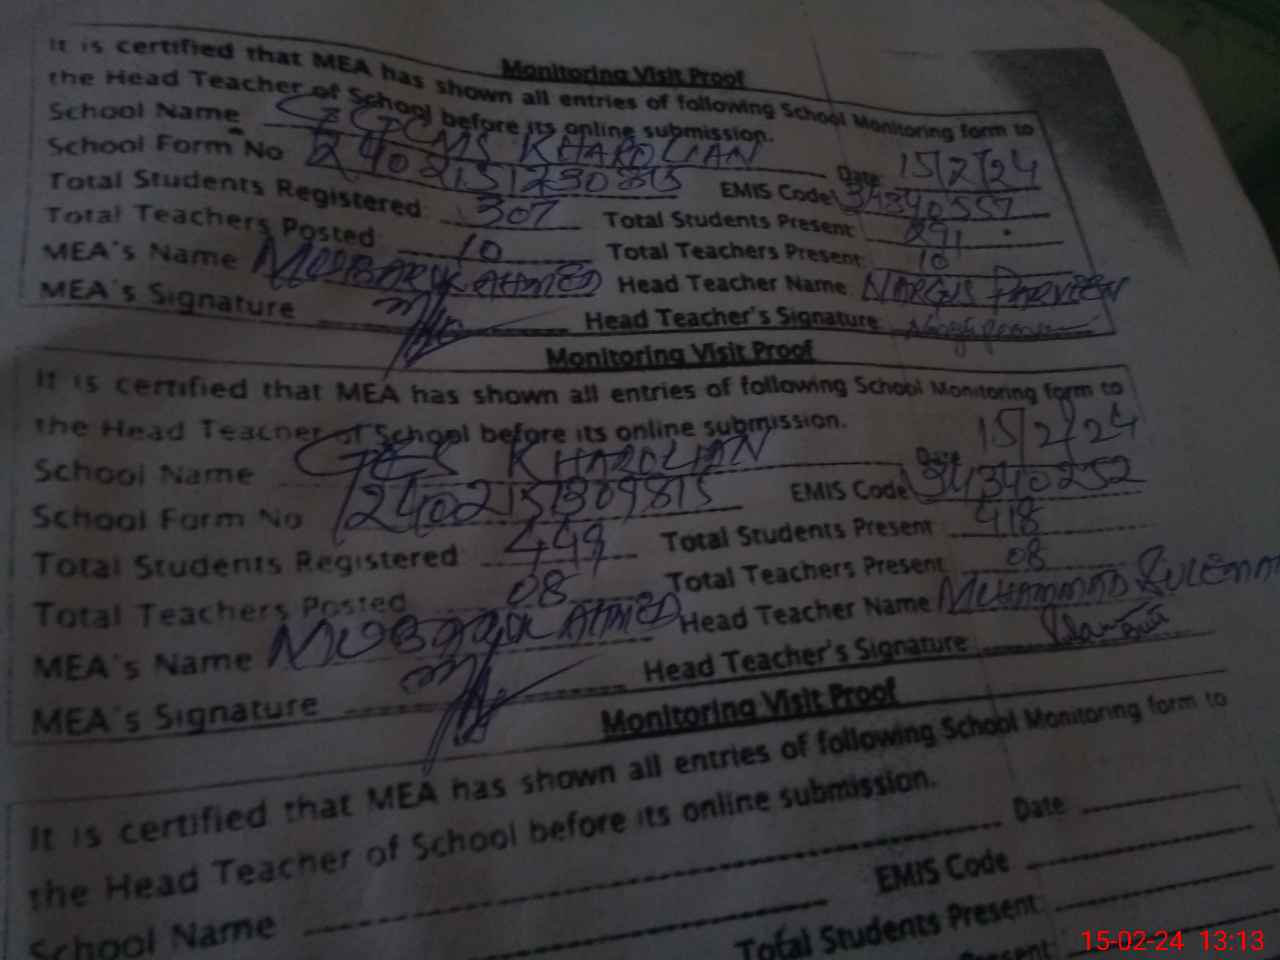 Monitoring Visit Proof
It is certified that MEA has shown all entries of following School Monitoring form to
the Head Teacher of School before its online submission.
School Name KHAROLIAN Date 15/2/24
School Form No 2402151230815 EMIS Code 34340557
Total Students Registered 307 Total Students Present 291
Total Teachers Posted 10 Total Teachers Present 10
MEA's Name MUBARIK AHMED Head Teacher Name NARGIS PARVEEN
MEA's Signature Head Teacher's Signature
Monitoring Visit Proof
It is certified that MEA has shown all entries of following School Monitoring form to
the Head Teacher of School before its online submission.
School Name GES KHAROLIAN Date 15/2/24
School Form No 2402151309815 EMIS Code 34340252
Total Students Registered 449 Total Students Present 418
Total Teachers Posted 08 Total Teachers Present 08
MEA's Name MUBARIK AHMED Head Teacher Name MUHAMMAD
MEA's Signature Head Teacher's Signature
Monitoring Visit Proof
It is certified that MEA has shown all entries of following School Monitoring form to
the Head Teacher of School before its online submission.
School Name Date
EMIS Code
Total Students Present
15-02-24 13:13